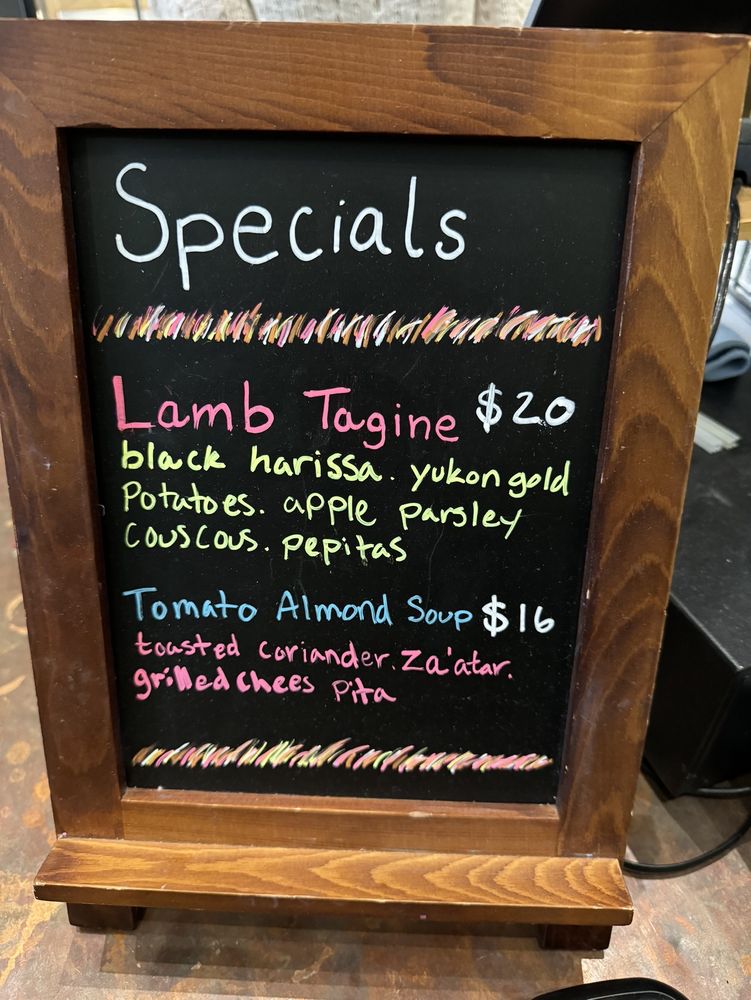 Specials
Lamb Tagine $20
black harissa. yukon gold
Potatoes. apple parsley
couscous. pepitas
Tomato Almond Soup $16
toasted coriander. Za'atar.
grilled chees pita